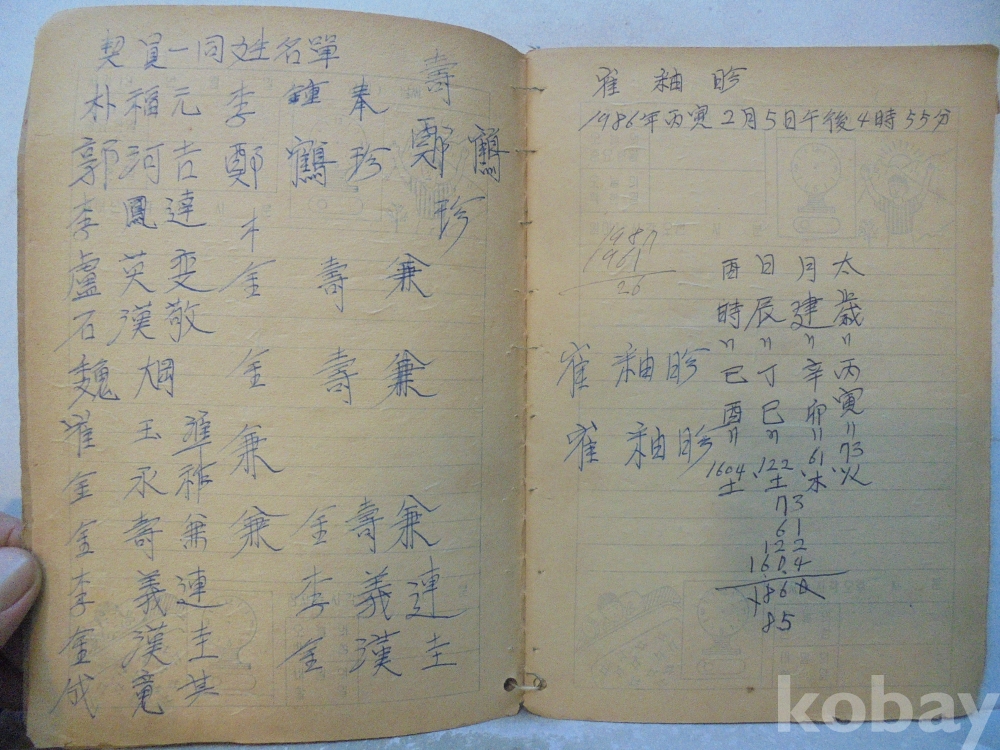 契員一同姓名單
壽
朴福元 李鍾奉
郭河吉 鄭鶴珍 鄭鶴
李鳳達 珍
盧英 金壽兼
石漢敬
魏 金壽兼
崔玉準
兼
金永祚
金壽兼 兼 金壽兼
李義連 李義連
金漢圭 金漢圭
成竟其
崔袖昣
1986年丙寅2月5日午後4時55分
1987
1961
26
酉 日 月 太
時 辰 建 歲
〃 〃 〃 〃
己 丁 辛 丙
酉 巳 卯 寅
〃 〃 〃 〃
1604 122 61 73
土 土 木 火
崔袖昣
崔袖昣
73
61
122
1604
1860
85
kobay